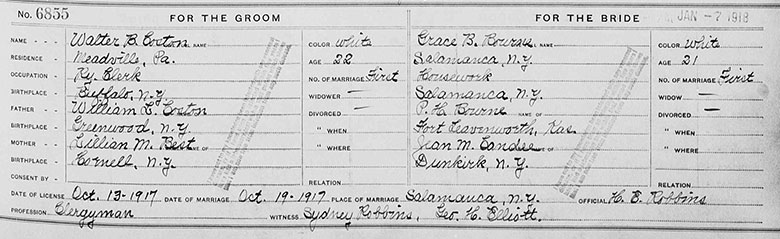 No. 6855 FOR THE GROOM FOR THE BRIDE JAN -7 1918
NAME Walter B. Coston NAME COLOR White Grace B. Bourne NAME COLOR White
RESIDENCE Meadville, Pa. AGE 22 Salamanca, N.Y. AGE 21
OCCUPATION Ry. Clerk NO. OF MARRIAGE First Housework NO. OF MARRIAGE First
BIRTHPLACE Buffalo, N.Y. WIDOWER — Salamanca, N.Y. WIDOW —
FATHER William L. Coston DIVORCED — P. H. Bourne NAME OF DIVORCED —
BIRTHPLACE Greenwood, N.Y. " WHEN Fort Leavenworth, Kas. " WHEN
MOTHER Lillian M. Best " WHERE Jean M. Candee " WHERE
BIRTHPLACE Cornell, N.Y. Dunkirk, N.Y.
CONSENT BY RELATION RELATION
DATE OF LICENSE Oct. 13-1917 DATE OF MARRIAGE Oct. 19-1917 PLACE OF MARRIAGE Salamanca, N.Y. OFFICIAL H. E. Robbins
PROFESSION Clergyman WITNESS Sydney Robbins, Geo. H. Elliott.